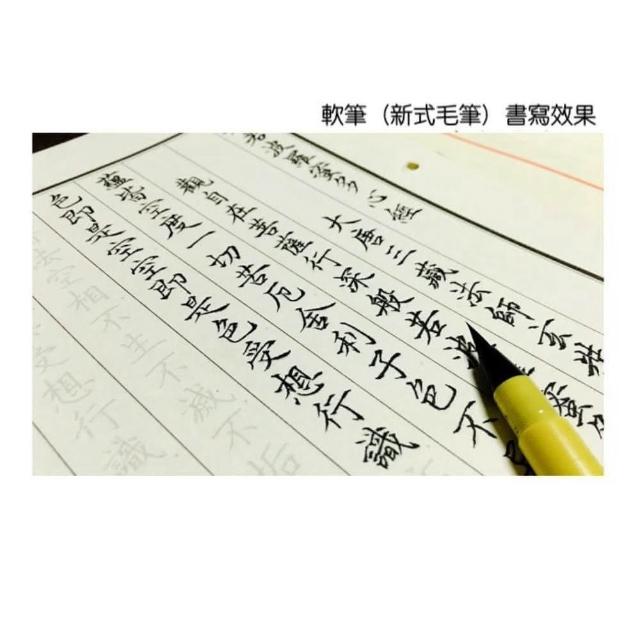 軟筆（新式毛筆）書寫效果
波羅蜜多心經
大唐三藏法師玄奘
觀自在菩薩行深般若波蜜多
蘊皆空度一切苦厄舍利子色不
色即是空空即是色受想行識
法空相不生不滅不垢
受想行識